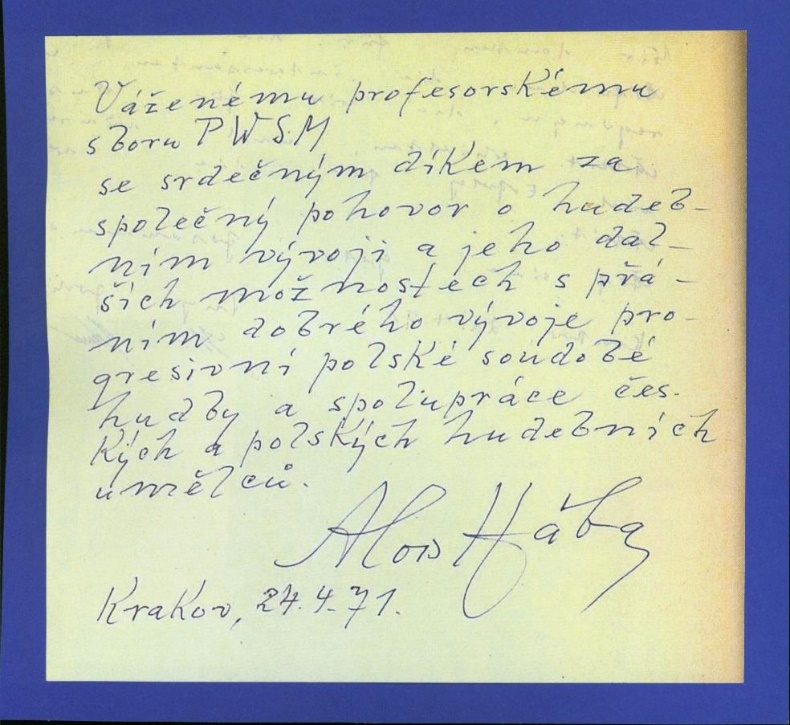 Váženému profesorskému
sboru PWSM
se srdečným díkem za
společný pohovor o hudeb-
ním vývoji a jeho dal-
ších možnostech s přá-
ním dobrého vývoje pro-
gresivní polské soudobé
hudby a spolupráce čes.
kých a polských hudebních
umělců.
Alois Hába
Krakov, 27.4.71.